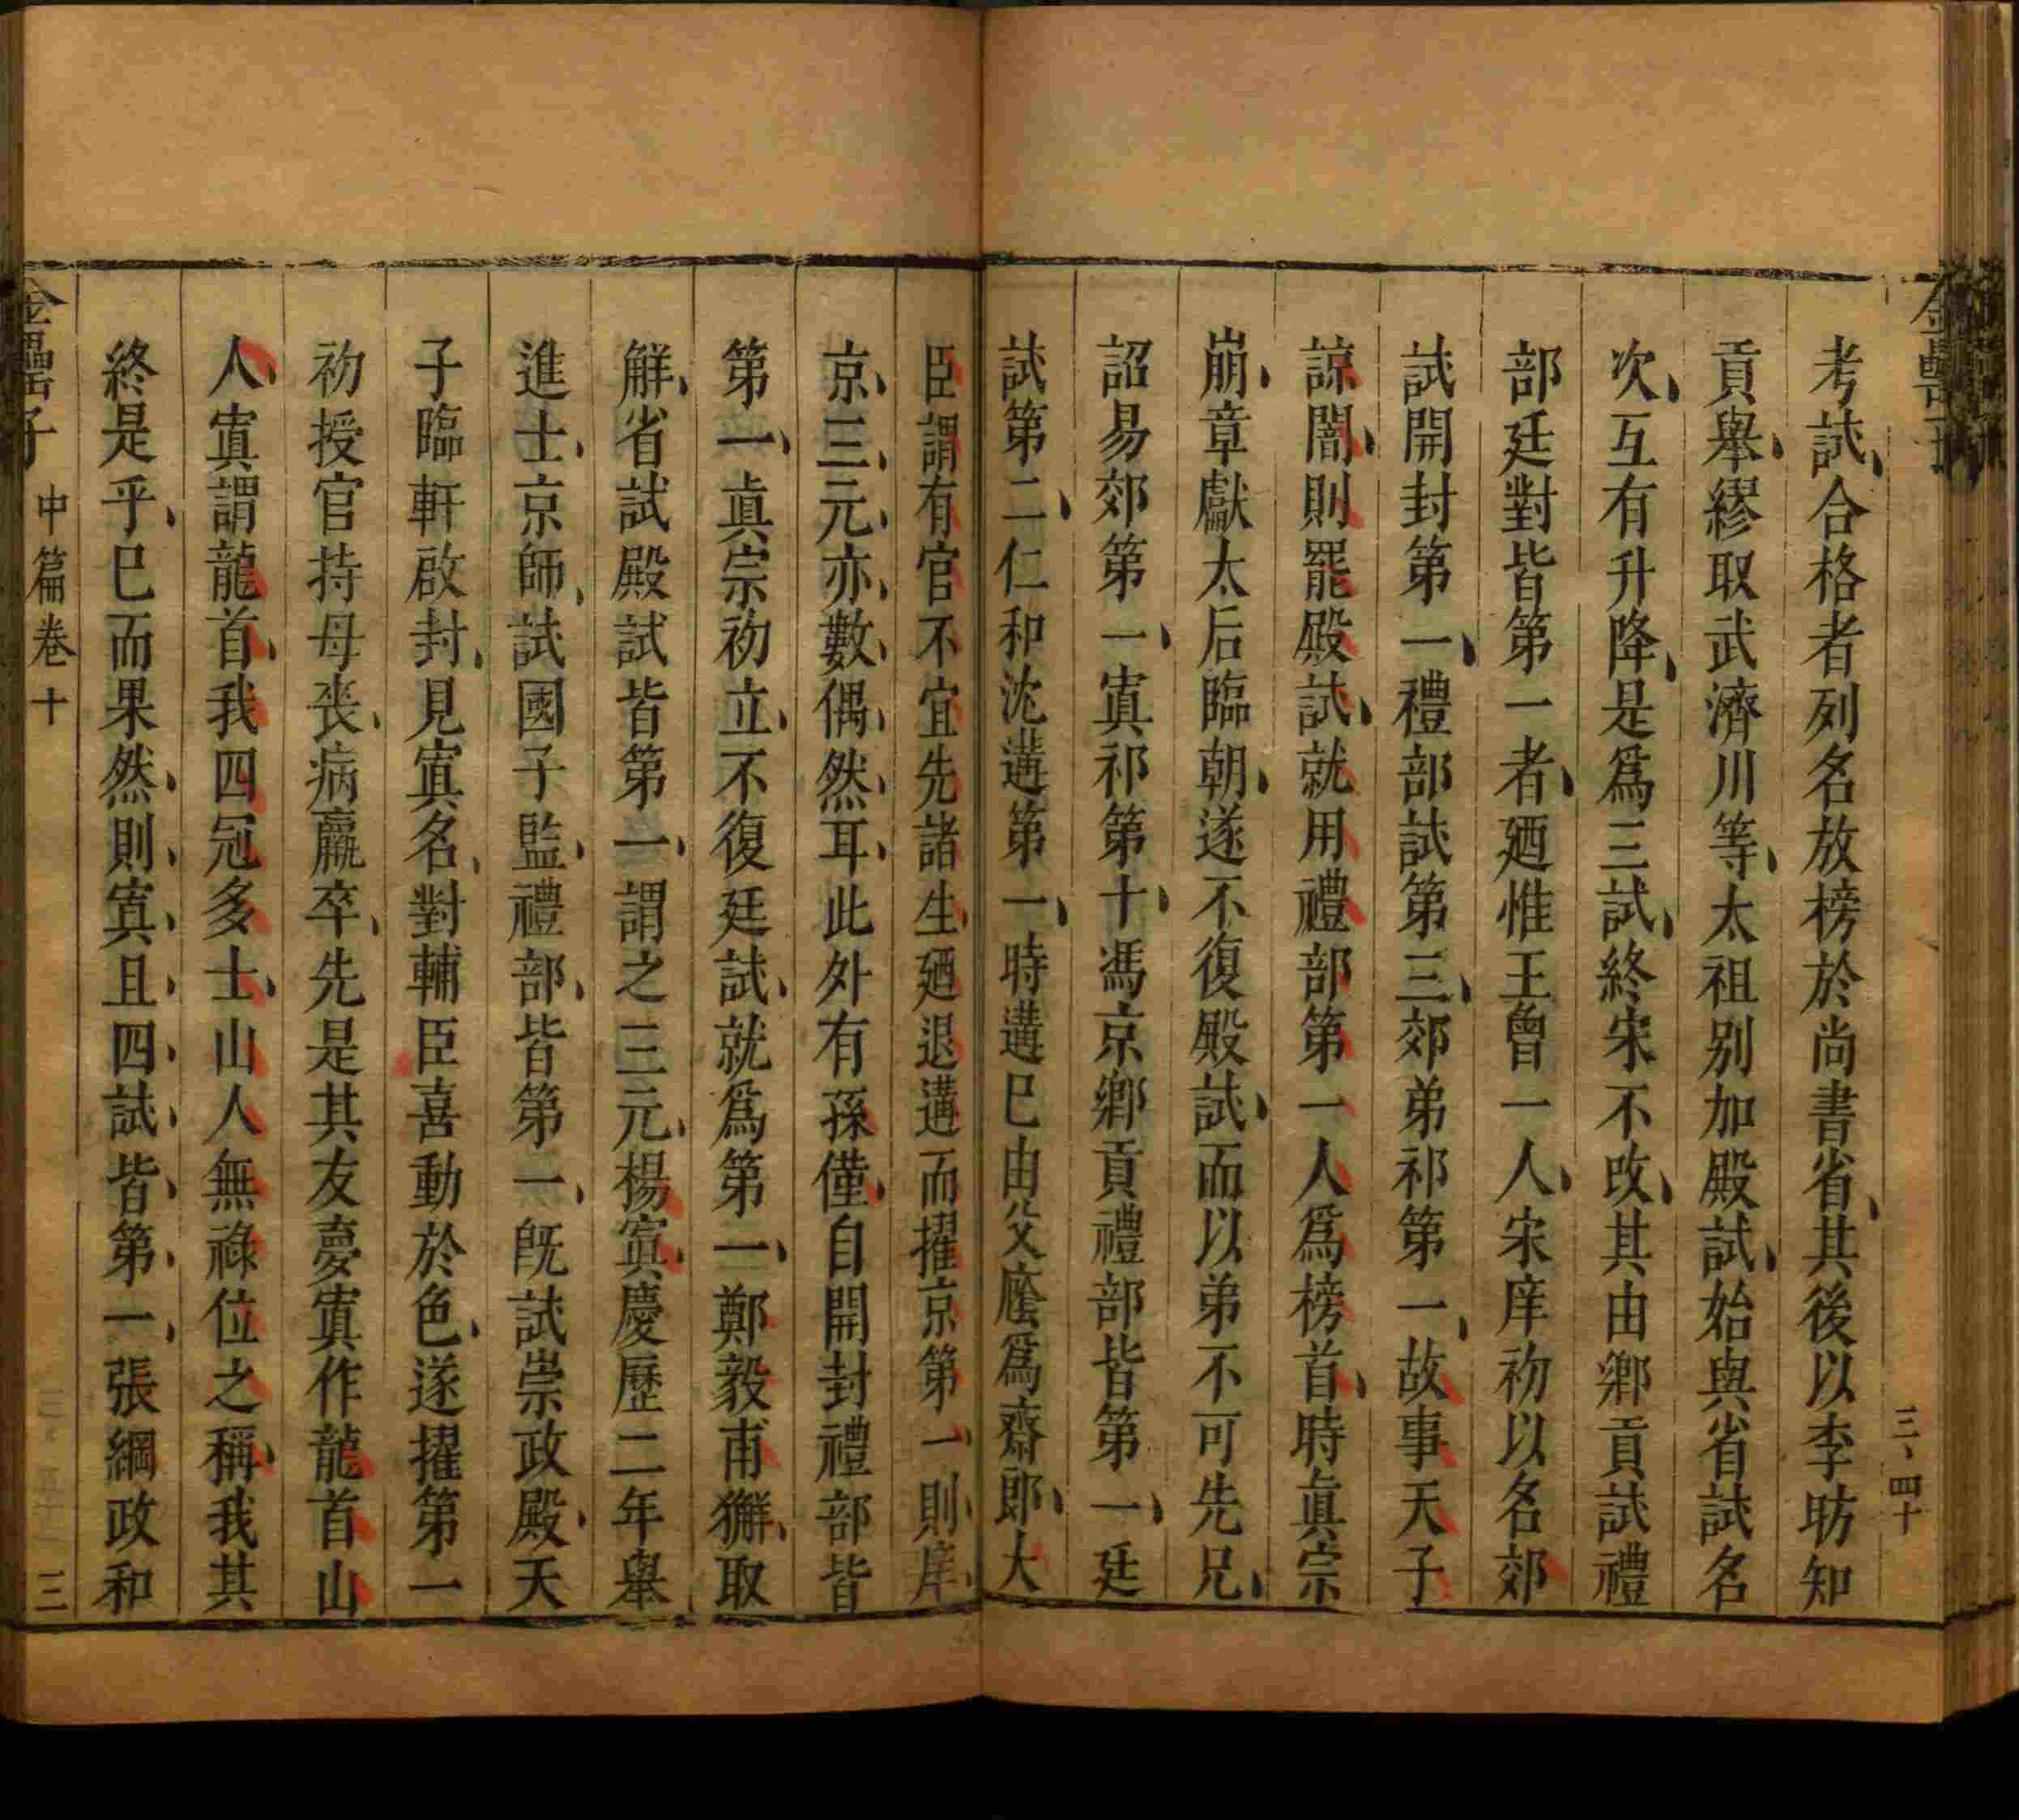 考試合格者列名放榜於尚書省其後以李昉知
貢舉繆取武濟川等太祖別加殿試始與省試名
次互有升降是爲三試終宋不改其由鄉貢試禮
部廷對皆第一者廼惟王曾一人宋庠初以名郊
試開封第一禮部試第三郊弟祁第一故事天子
諒闇則罷殿試就用禮部第一人爲榜首時眞宗
崩章獻太后臨朝遂不復殿試而以弟不可先兄
詔易郊第一寘祁第十馮京鄉貢禮部皆第一廷
試第二仁和沈遘第一時遘巳由父廕爲齋郎大
臣謂有官不宜先諸生廼退遘而擢京第一則庠
京三元亦數偶然耳此外有孫僅自開封禮部皆
第一眞宗初立不復廷試就爲第一鄭毅甫獬取
解省試殿試皆第一謂之三元楊寘慶歷二年舉
進士京師試國子監禮部皆第一旣試崇政殿天
子臨軒啟封見寘名對輔臣喜動於色遂擢第一
初授官持母喪病羸卒先是其友夢寘作龍首山
人寘謂龍首我四冠多士山人無祿位之稱我其
終是乎巳而果然則寘且四試皆第一張綱政和
金罍子 中篇卷十 三